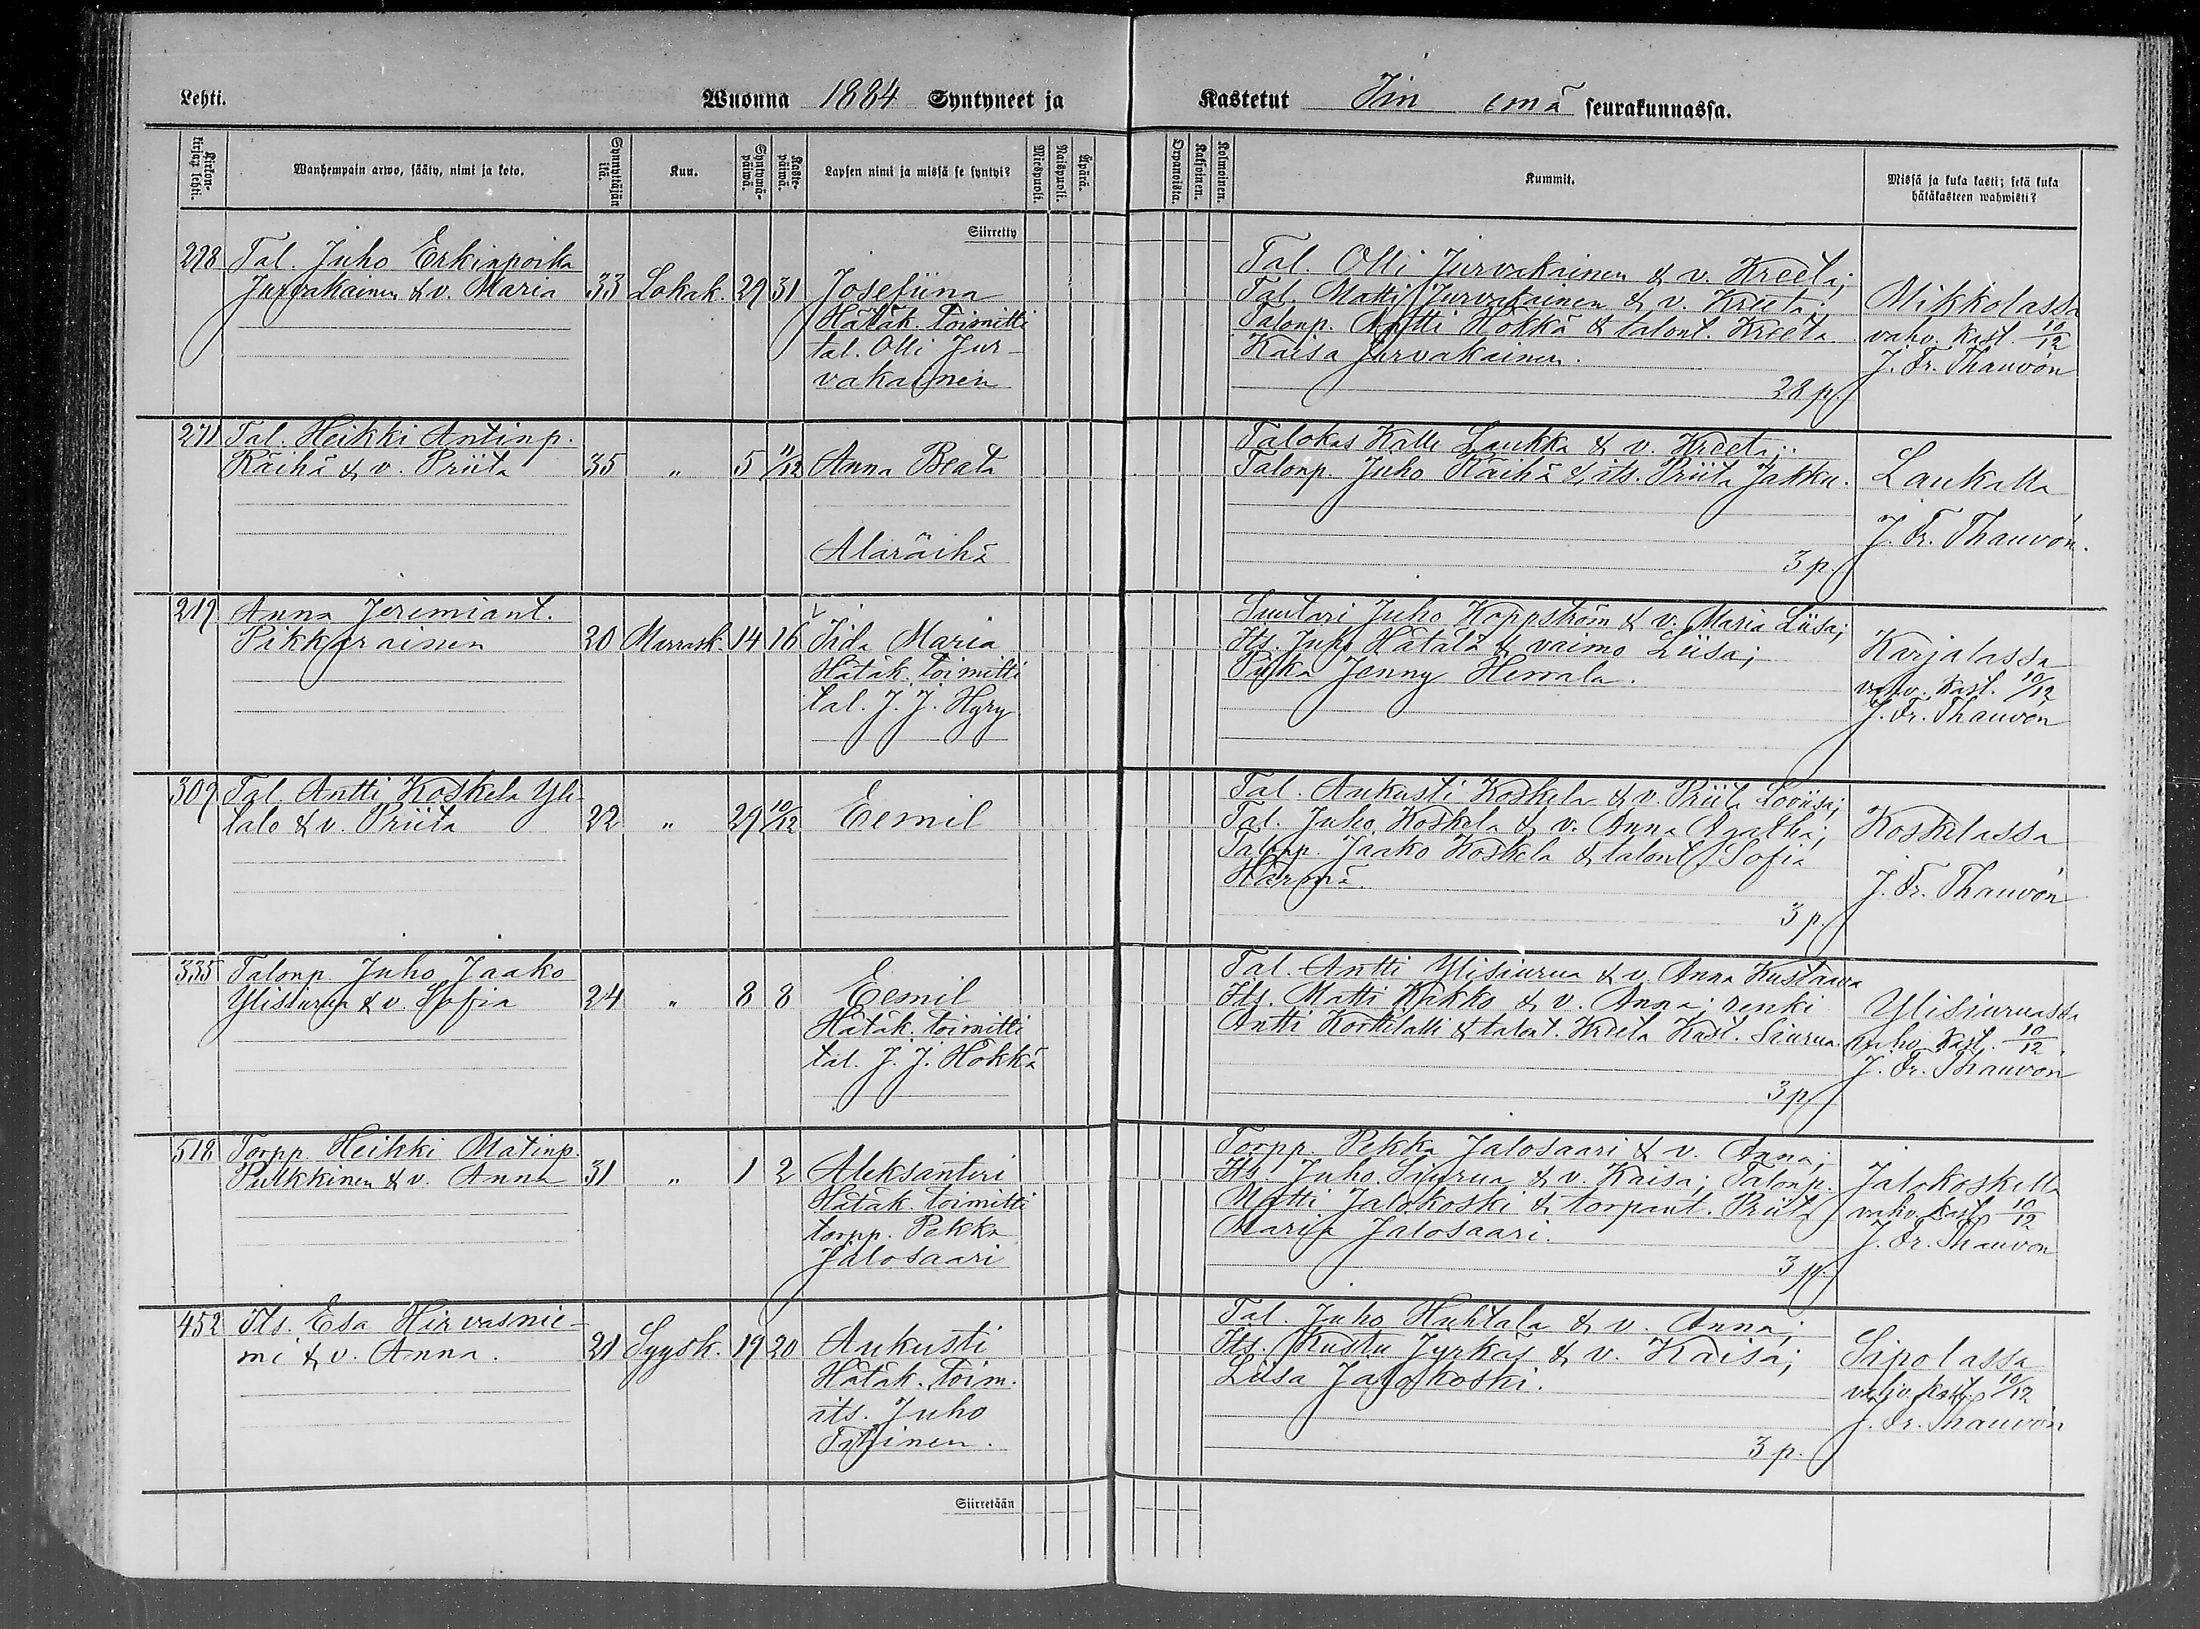 Lehti.
Wuonna 1884 Syntyneet ja
Kastetut Iin emä seurakunnassa.
Kirkonkirjan lehti.
Wanhempain arwo, sääty, nimi ja koto.
Synnyttäjän ikä.
Kuu.
Syntymäpäiwä.
Kastepäiwä.
Lapsen nimi ja missä se syntyi?
Miespuoli.
Naispuoli.
Äpärä.
Kaksoinen.
Kolmoinen.
Kummit.
Missä ja kuka kasti; sekä kuka
hätäkasteen wahwisti?
Siirretty
298 Tal. Juho Erkinpoika
Jurvakainen & v. Maria 33 Lokak. 29 31 Josefiina
Hätäk. toimitti
tal. Olli Jur-
vakainen
Tal. Olli Jurvakainen & v. Kreeta;
Tal. Matti Jurvakainen & v. Kreeta.
Talonp. Antti Hökkä & talont. Kreeta
Kaisa Jurvakainen.
28 p.
Mikkolassa
vahv. kast. 10/12
J. Fr. Thauvón
271 Tal. Heikki Antinp.
Räihä & v. Priita 35 " 5 11/12 Anna Beata
Alaräihä
Talokas Kalle Laukka & v. Kreeta;
Talonp. Juho Räihä & its. Priita Jakku.
3 p.
Laukalla
J. Fr. Thauvón.
219 Anna Jeremiant.
Pikkarainen 20 Marrask. 14 16 Iida Maria
Hätäk. toimitti
tal. J. J. Hyry
Suutari Juho Koppström & v. Maria Liisa;
Its. Juho Hätälä & vaimo Liisa;
Piika Jenny Herrala.
Karjalassa
vahv. kast. 10/12
J. Fr. Thauvón
309 Tal. Antti Koskela Yli-
talo & v. Priita 22 " 29 10/12 Eemil
Tal. Aukusti Koskela & v. Priita Loviisa;
Tal. Juho Koskela & v. Anna Agatha;
Talonp. Jaako Koskela & talont. Sofia
Härmä.
3 p.
Koskelassa
J. Fr. Thauvón
335 Talonp. Juho Jaako
Ylisiurua & v. Sofia 24 " 8 8 Eemil
Hätäk. toimitti
tal. J. J. Hökkä
Tal. Antti Ylisiurua & v. Anna Kustaava
Its. Matti Kakko & v. Anna; renki
Antti Koskelalli & talont. Kreeta Kast. Siurua.
3 p
Ylisiuruassa
vahv. kast. 10/12.
J. Fr. Thauvón
518 Torpp. Heikki Matinp.
Pulkkinen & v. Anna 31 " 1 2 Aleksanteri
Hätäk. toimitti
torpp. Pekka
Jalosaari
Torpp. Pekka Jalosaari & v. Anna;
Its. Juho Siurua & v. Kaisa; Talonp.
Matti Jalokoski & torpant. Priita
Maria Jalosaari.
3 p.
Jalokoskella
vahv. kast. 10/12
J. Fr. Thauvón
452 Its. Esa Hirvasnie-
mi & v. Anna. 21 Syysk. 19 20 Aukusti
Hätäk. toim.
its. Juho
Tihinen.
Tal. Juho Huhtala & v. Anna;
Its. Kustu Jyrkäs & v. Kaisa;
Liisa Jalokoski.
3 p.
Sipolassa
vahv. kast. 10/12
J. Fr. Thauvón
Siirretään